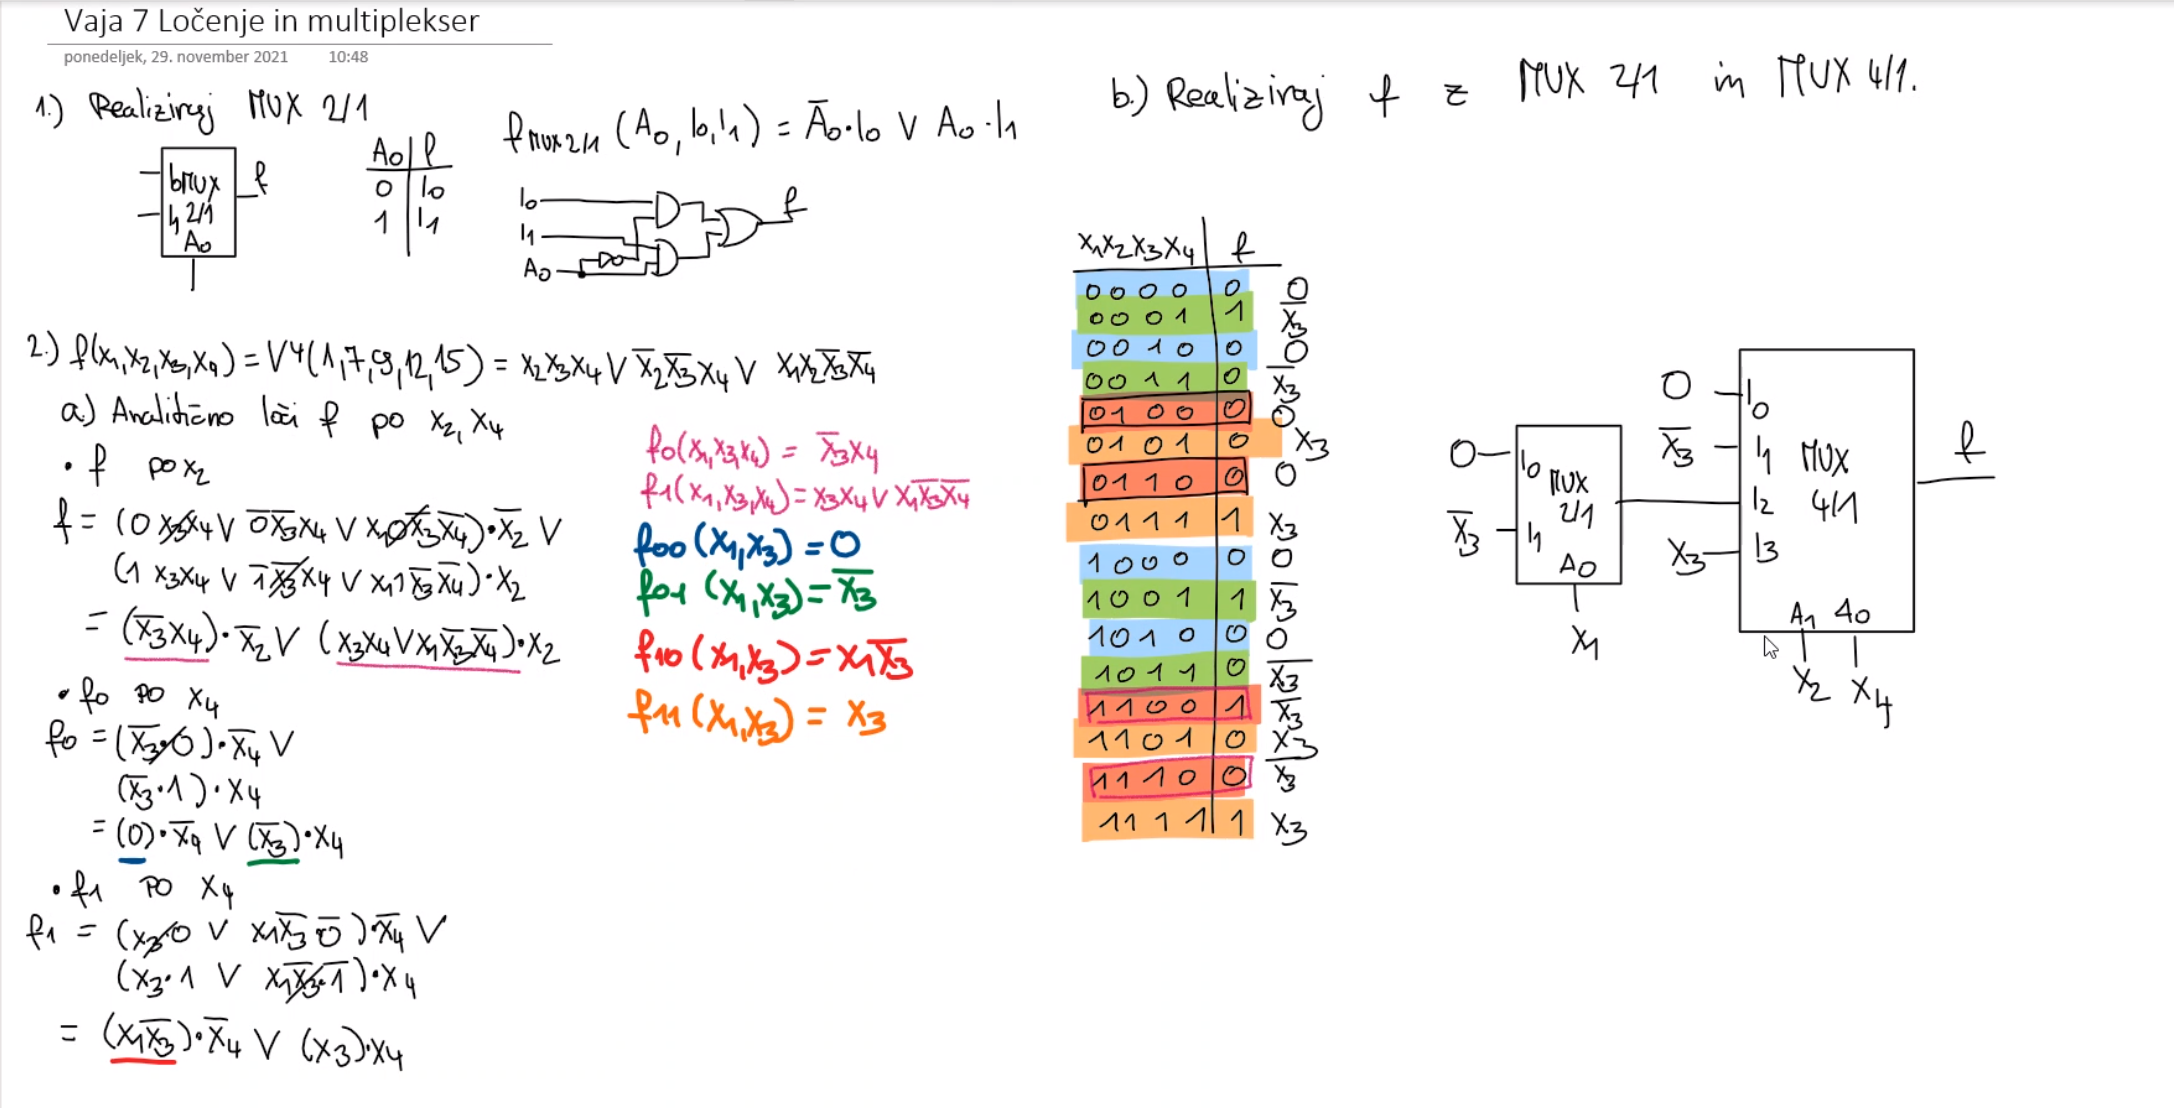 Vaja 7 Ločenje in multiplekser
ponedeljek, 29. november 2021 10:48
1.) Realiziraj MUX 2/1
I0 MUX
I1 2/1
A0
f
A0 | f
0 | I0
1 | I1
f MUX 2/1 (A0, I0, I1) = A̅0·I0 V A0·I1
I0
I1
A0
f
2.) f(x1,x2,x3,x4) = V⁴(1,7,9,12,15) = x2x3x4 V x̅2x̅3x4 V x1x2x̅3x̅4
a.) Analitično loči f po x2, x4
• f po x2
f = (0 x3x4 V 0̅x̅3x4 V x10x̅3x̅4)·x̅2 V
(1 x3x4 V 1̅x̅3x4 V x11x̅3x̅4)·x2
= (x̅3x4)·x̅2 V (x3x4 V x1x̅3x̅4)·x2
• f0 po x4
f0 = (x̅3·0)·x̅4 V
(x̅3·1)·x4
= (0)·x̅4 V (x̅3)·x4
• f1 po x4
f1 = (x3·0 V x1x̅3 0̅)·x̅4 V
(x3·1 V x1x̅3·1̅)·x4
= (x1x̅3)·x̅4 V (x3)·x4
f0(x1,x3,x4) = x̅3x4
f1(x1,x3,x4) = x3x4 V x1x̅3x̅4
f00(x1,x3) = 0
f01(x1,x3) = x̅3
f10(x1,x3) = x1x̅3
f11(x1,x3) = x3
b.) Realiziraj f z MUX 2/1 in MUX 4/1.
x1x2x3x4 | f
0 0 0 0 | 0 0
0 0 0 1 | 1 x̅3
0 0 1 0 | 0 0
0 0 1 1 | 0 x̅3
0 1 0 0 | 0 0
0 1 0 1 | 0 x3
0 1 1 0 | 0 0
0 1 1 1 | 1 x3
1 0 0 0 | 0 0
1 0 0 1 | 1 x̅3
1 0 1 0 | 0 0
1 0 1 1 | 0 x̅3
1 1 0 0 | 1 x̅3
1 1 0 1 | 0 x3
1 1 1 0 | 0 x̅3
1 1 1 1 | 1 x3
0 I0 MUX
2/1
x̅3 I1
A0
x1
0 I0
x̅3 I1 MUX
I2 4/1
x3 I3
A1 A0
x2 x4
f